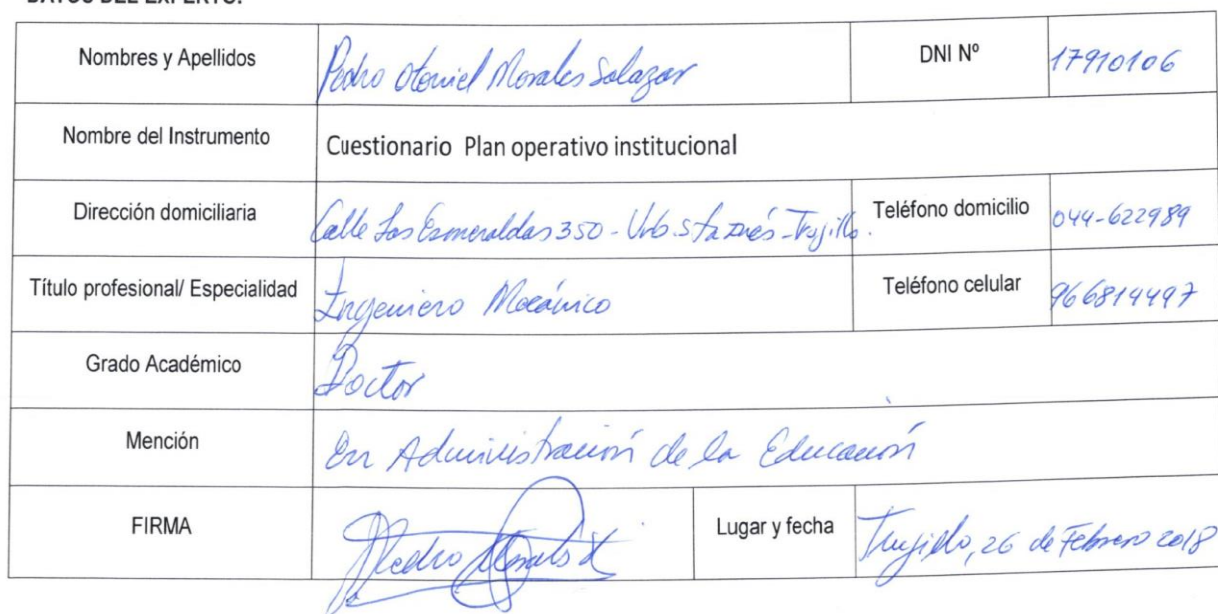 DATOS DEL EXPERTO:
Nombres y Apellidos Pedro Otoniel Morales Salazar DNI Nº 17910106
Nombre del Instrumento Cuestionario Plan operativo institucional
Dirección domiciliaria Calle Las Esmeraldas 350 - Urb. Sta Inés - Trujillo. Teléfono domicilio 044-622989
Título profesional/ Especialidad Ingeniero Mecánico Teléfono celular 966814497
Grado Académico Doctor
Mención En Administración de la Educación
FIRMA Pedro Morales S Lugar y fecha Trujillo, 26 de Febrero 2018